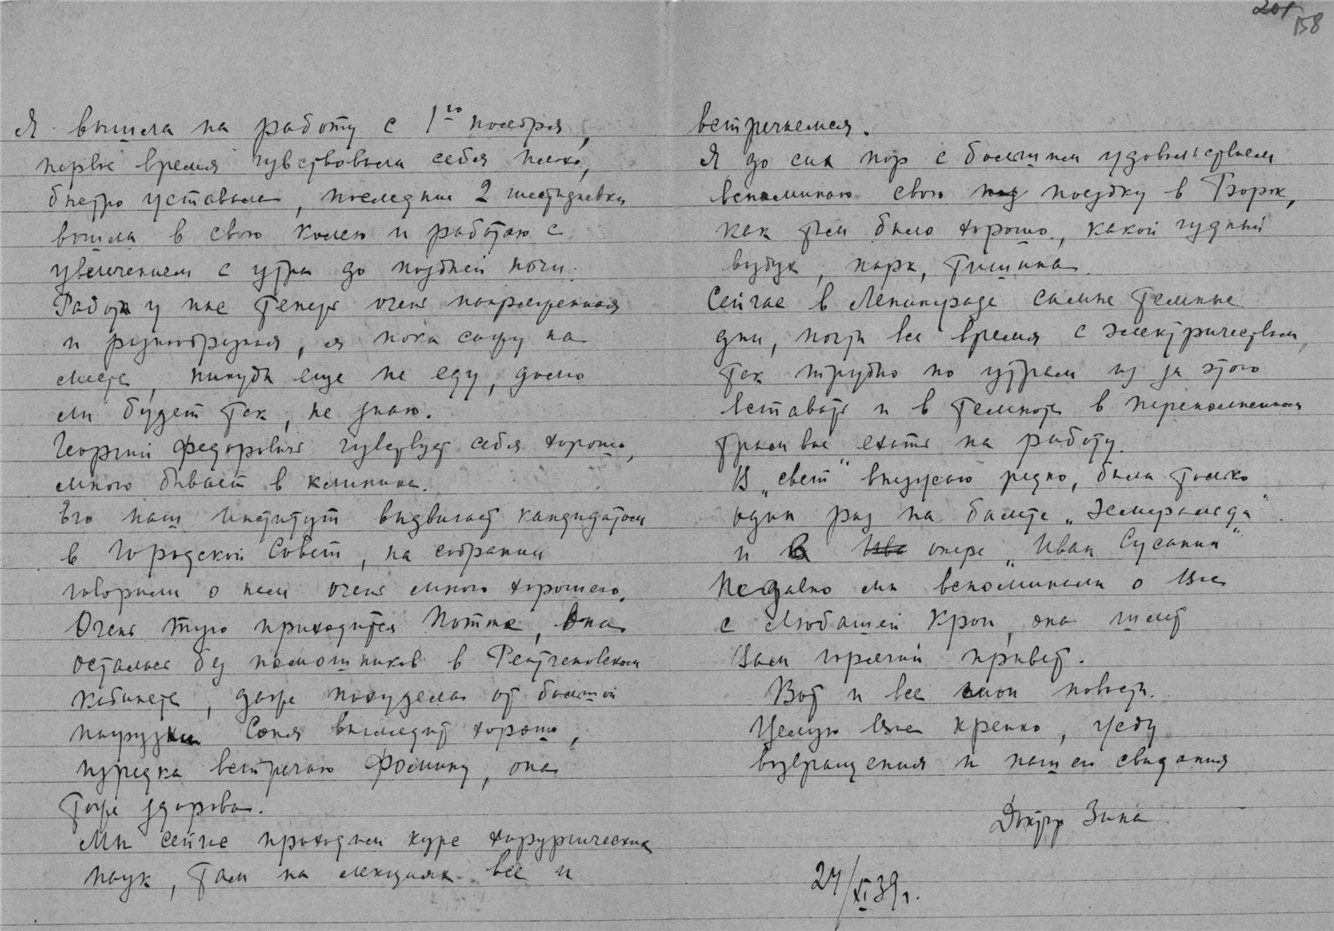 201
158
Я вышла на работу с 1го ноября,
первое время чувствовала себя плохо,
быстро уставала, последние 2 шестидневки
вошла в свою колею и работаю с
увлечением с утра до поздней ночи.
Работа у нас теперь очень напряженная
и разнообразная, я пока сижу на
месте, никуда еще не еду, долго
ли будет так, не знаю.
Георгий Федорович чувствует себя хорошо,
много бывает в клинике.
Его наш Институт выдвигает кандидатом
в Городской Совет, на собрании
говорили о нем очень много хорошего.
Очень туго приходится Потте, Она
осталась без помощников в Рентгеновском
кабинете, даже похудела от большой
нагрузки Соня выглядит хорошо,
изредка встречаю Фомину, она
тоже здорова.
Мы сейчас проходим курс хирургических
наук, там на лекциях все и
встречаемся.
Я до сих пор с большим удовольствием
вспоминаю свою поездку в Борок,
как там было хорошо, какой чудный
воздух, парк, тишина.
Сейчас в Ленинграде самые темные
дни, почти все время с электричеством,
так трудно по утрам из за этого
вставать и в темноте в переполненном
трамвае ехать на работу.
В „свет" выезжаю редко, была только
один раз на балете „Эсмеральда"
и в опере „Иван Сусанин"
Недавно мы вспоминали о Вас
с Любашей Крон, она шлет
Вам горячий привет.
Вот и все мои новости.
Целую Вас крепко, жду
возвращения и нашего свидания
Доктор Зина
24/XI 39 г.